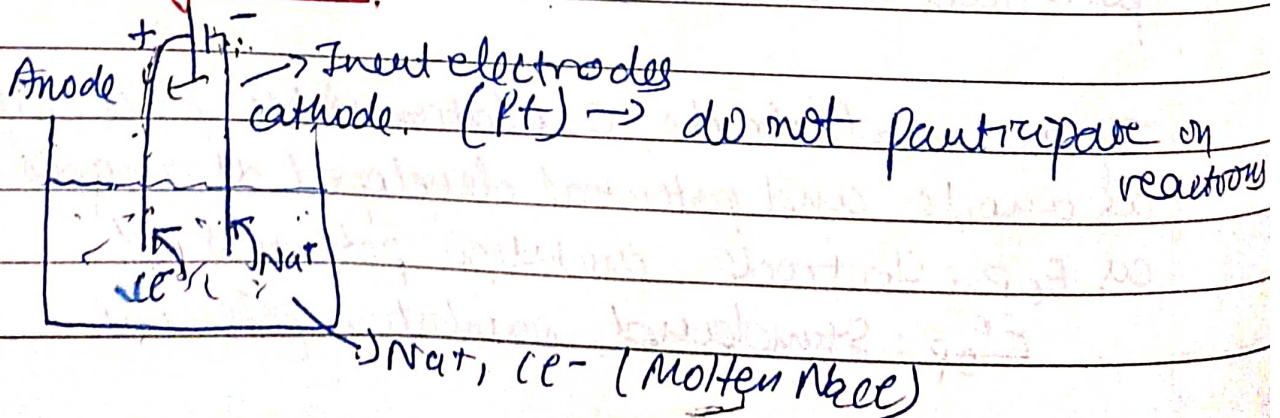 + −
Anode → Inert electrodes
cathode. (Pt) → do not participate in
reactions
Cl⁻ Na+
→ Na+, Cl- (Molten NaCl)